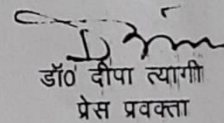 डॉ0 दीपा त्यागी
प्रेस प्रवक्ता